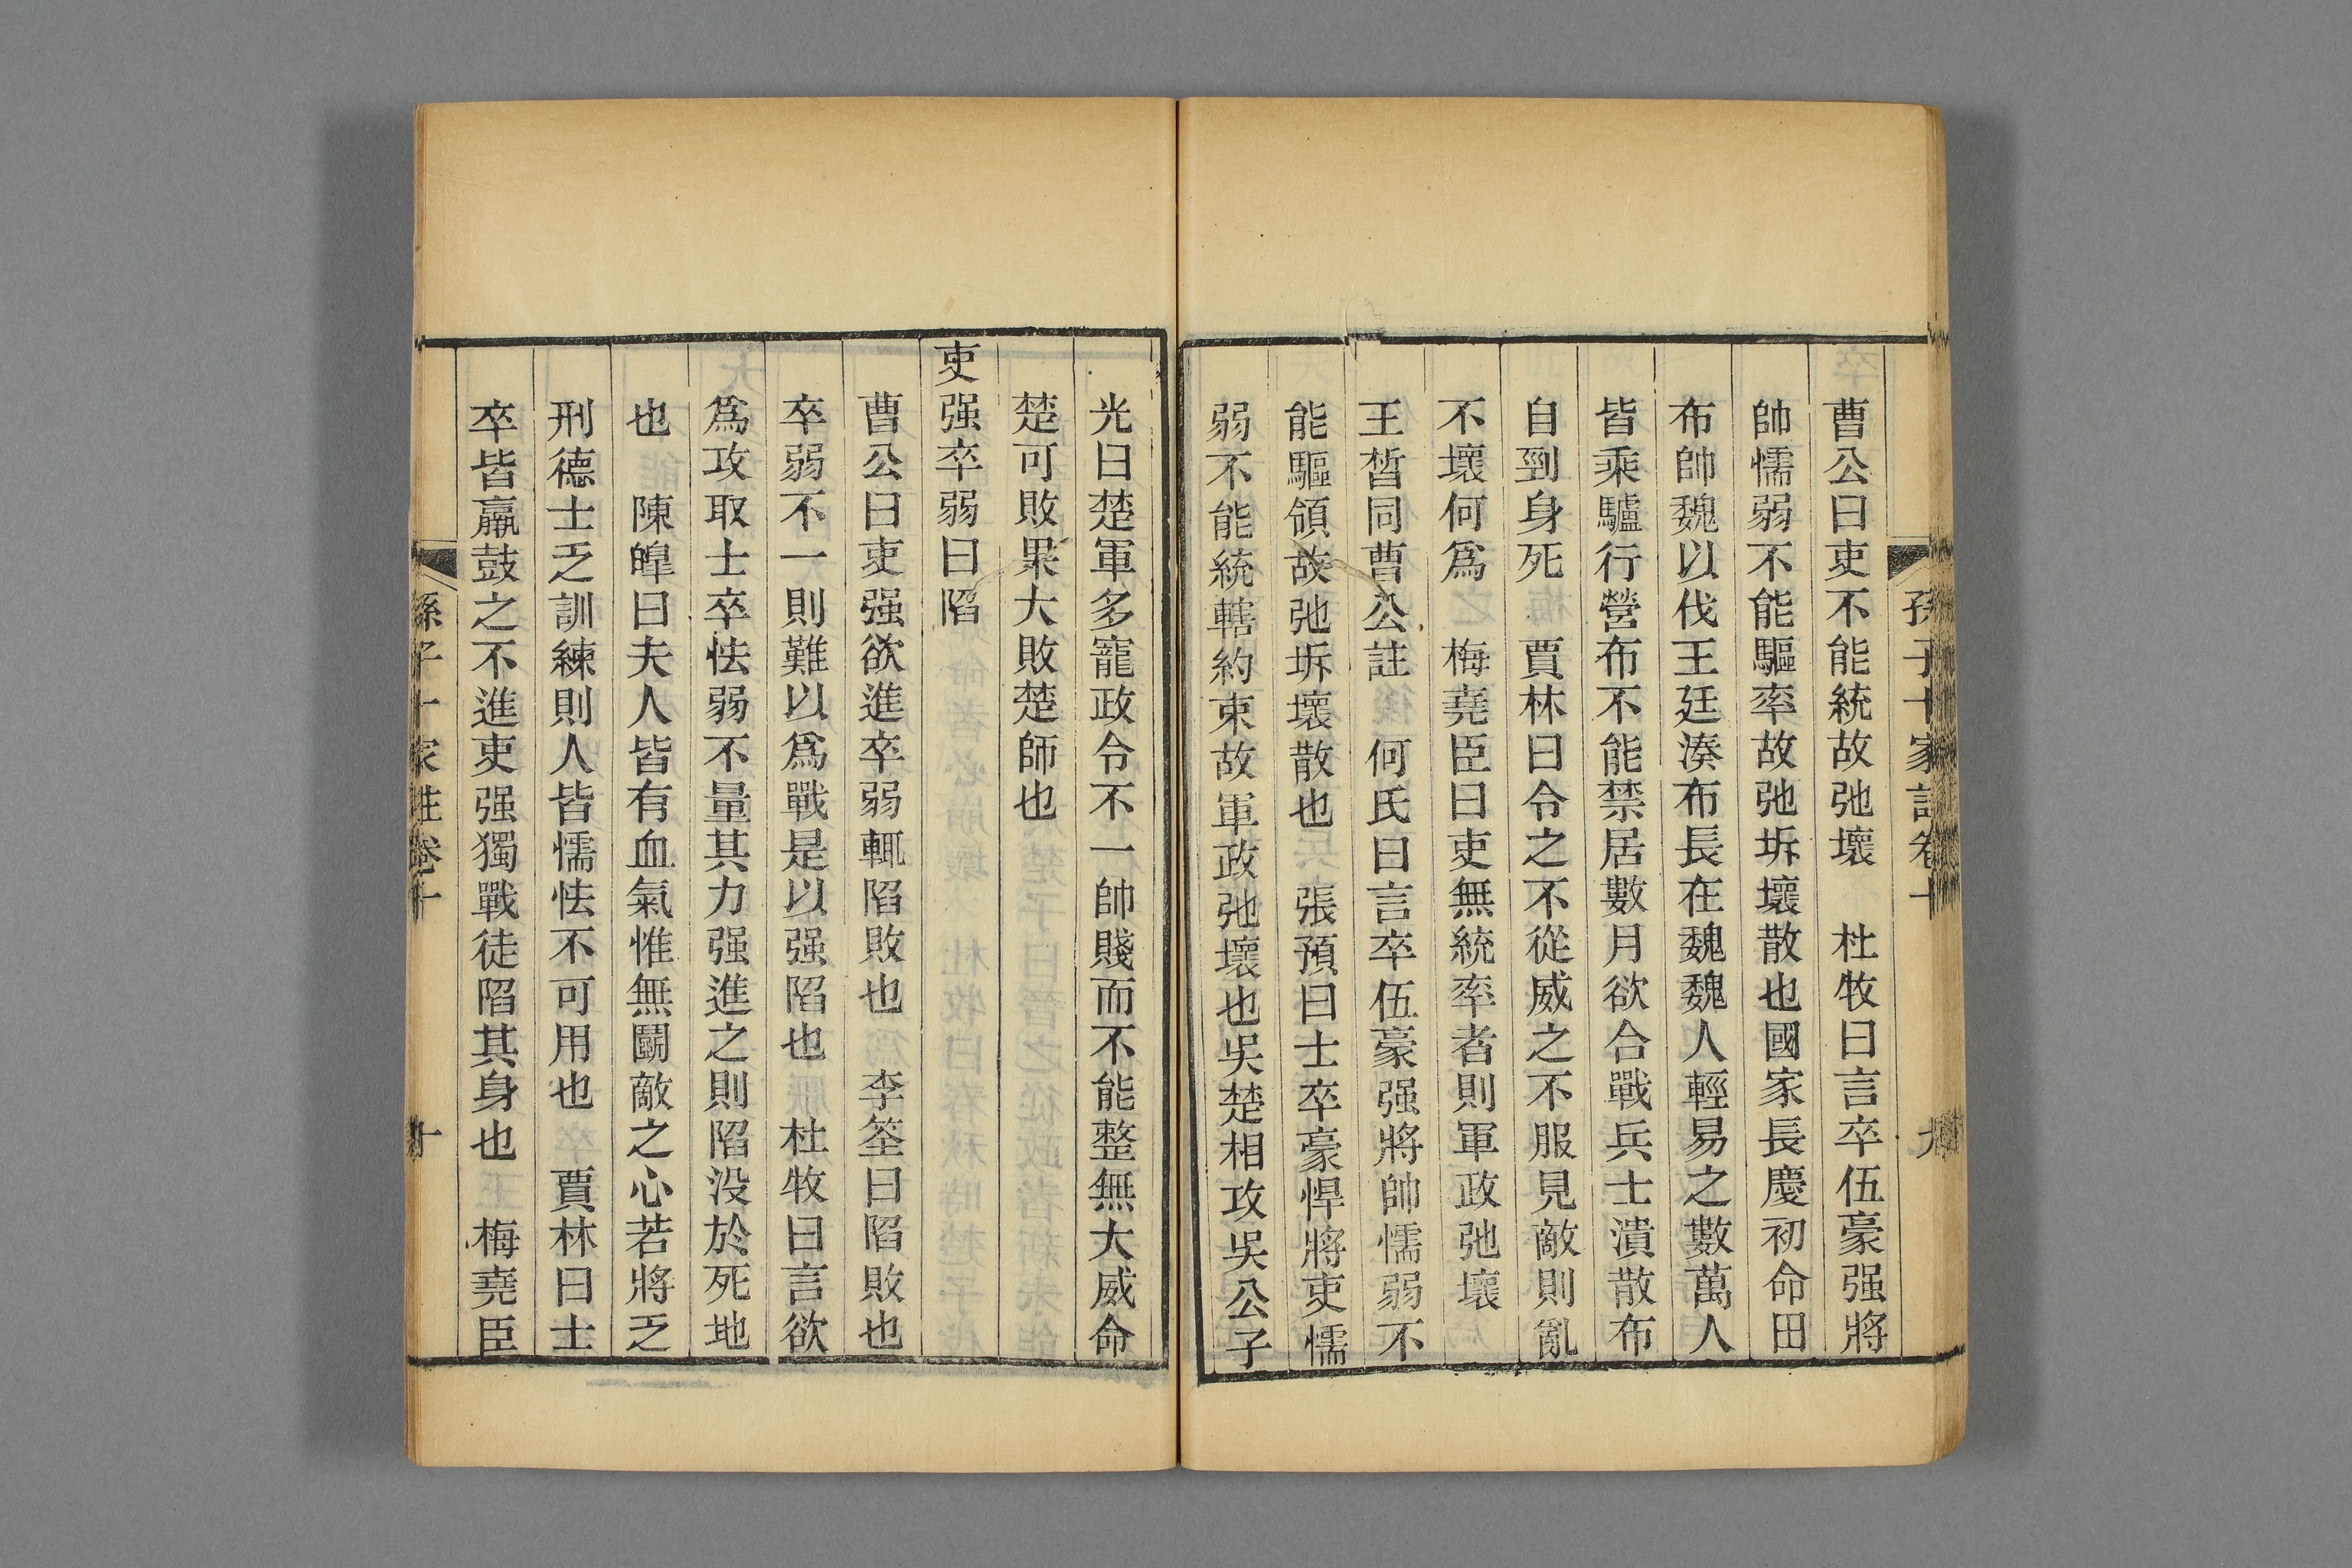 孫子十家註卷十 九
曹公曰吏不能統故弛壞 杜牧曰言卒伍豪强將
帥懦弱不能驅率故弛坼壞散也國家長慶初命田
布帥魏以伐王廷湊布長在魏魏人輕易之數萬人
皆乘驢行營布不能禁居數月欲合戰兵士潰散布
自剄身死 賈林曰令之不從威之不服見敵則亂
不壞何爲 梅堯臣曰吏無統率者則軍政弛壞
王晳同曹公註 何氏曰言卒伍豪强將帥懦弱不
能驅領故弛坼壞散也 張預曰士卒豪悍將吏懦
弱不能統轄約束故軍政弛壞也吳楚相攻吳公子
光曰楚軍多寵政令不一帥賤而不能整無大威命
楚可敗果大敗楚師也
吏强卒弱曰陷
曹公曰吏强欲進卒弱輒陷敗也 李筌曰陷敗也
卒弱不一則難以爲戰是以强陷也 杜牧曰言欲
爲攻取士卒怯弱不量其力强進之則陷没於死地
也 陳皥曰夫人皆有血氣惟無鬬敵之心若將乏
刑德士乏訓練則人皆懦怯不可用也 賈林曰士
卒皆羸鼓之不進吏强獨戰徒陷其身也 梅堯臣
孫子十家註卷十 十